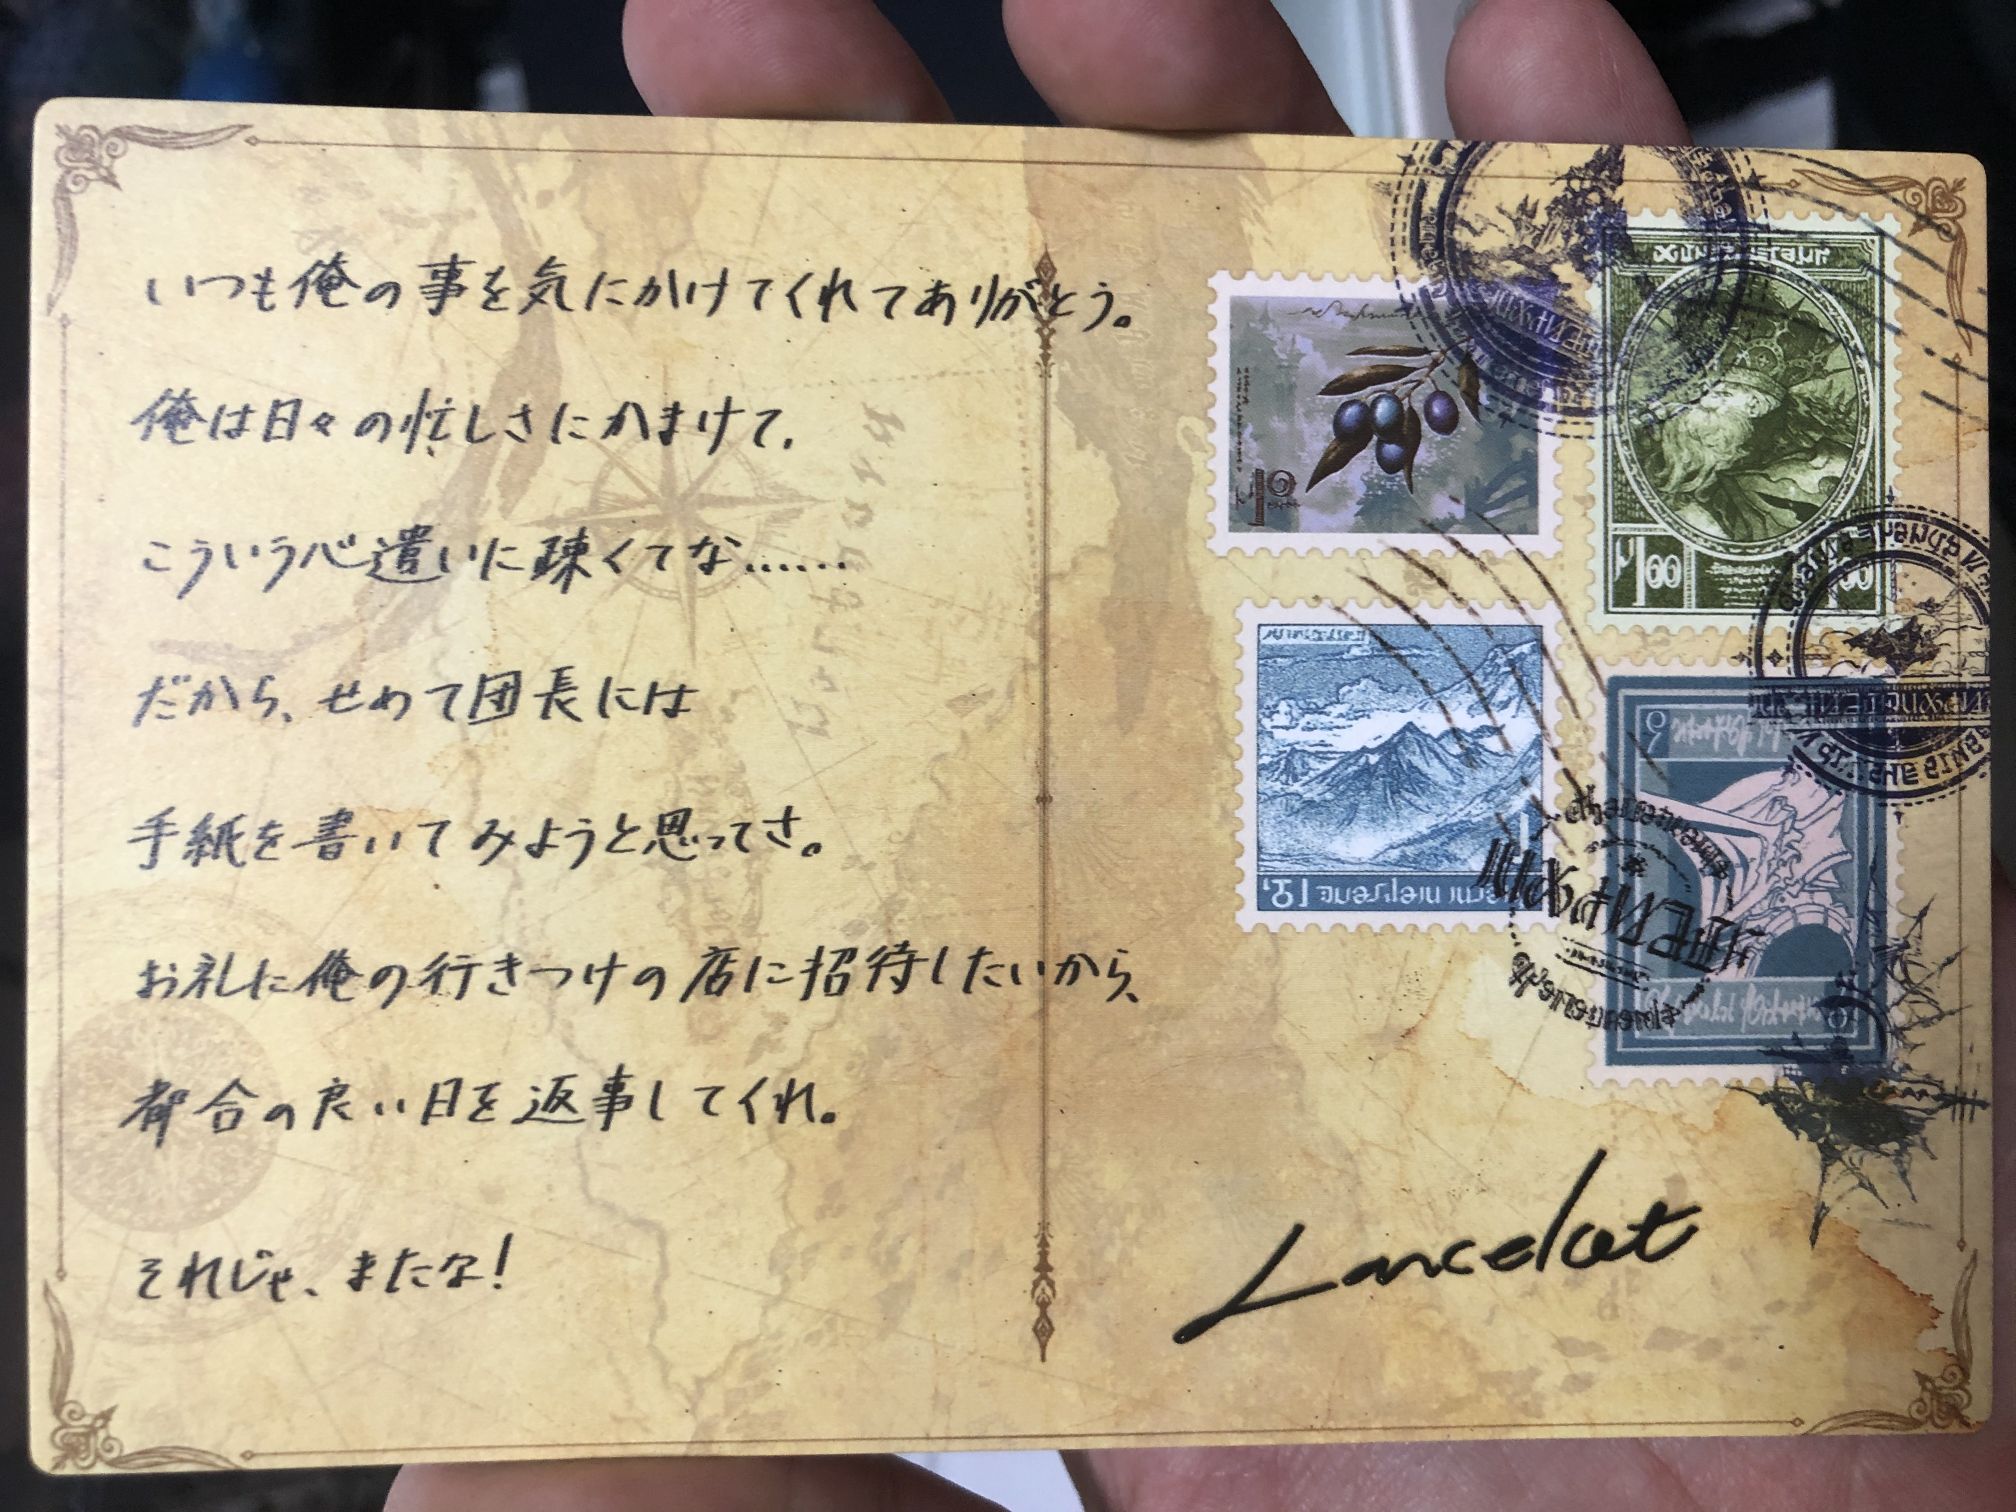 いつも俺の事を気にかけてくれてありがとう。
俺は日々の忙しさにかまけて、
こういう心遣いに疎くてな……
だから、せめて団長には
手紙を書いてみようと思ってさ。
お礼に俺の行きつけの店に招待したいから、
都合の良い日を返事してくれ。
それじゃ、またな!
Lancelot